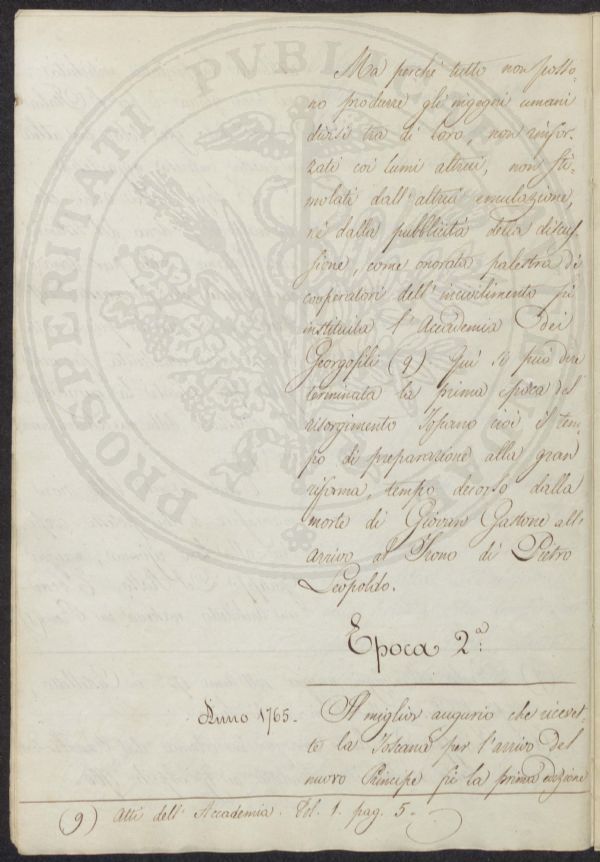 Ma perché tutto non posso=
no produrre gli ingegni umani
divisi tra di loro, non rinfor=
zati coi lumi altrui, non sti=
molati dall'altrui emulazione,
né dalla pubblicità della discus=
sione, come onorata palestra di
cooperatori dell'incivilimento fù
instituita l'Accademia dei
Georgofili (9) Quì si può dire
terminata la prima epoca del
risorgimento Toscano cioè il tem=
po di preparazione alla gran
riforma, tempo decorso dalla
morte di Giovan Gastone all'
arrivo al Trono di Pietro
Leopoldo.
Epoca 2ª:
Anno 1765.
Il miglior augurio che ricevet=
te la Toscana per l'arrivo del
nuovo Principe fù la prima edizione
(9) Atti dell'Accademia. Vol. 1. pag. 5.
PROSPERITATI PVBLICAE